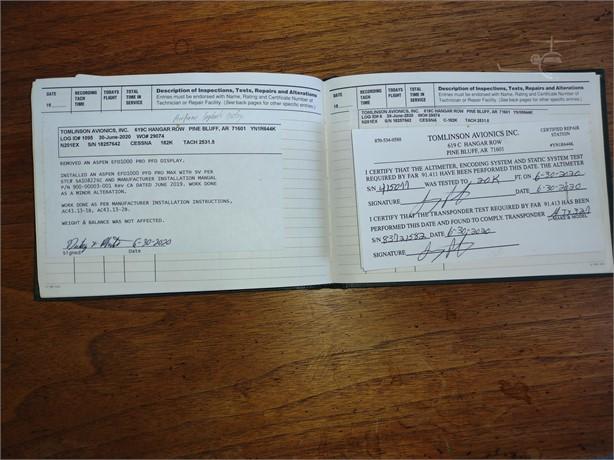 DATE RECORDING TACH TIME TODAYS FLIGHT TOTAL TIME IN SERVICE Description of Inspections, Tests, Repairs and Alterations
Entries must be endorsed with Name, Rating and Certificate Number of
19 Technician or Repair Facility. (See back pages for other specific entries.)
TOMLINSON AVIONICS, INC. 619C HANGAR ROW PINE BLUFF, AR 71601 YN1R644K
LOG ID# 1095 30-June-2020 WO# 29074
N201EX S/N 18257642 CESSNA 182K TACH 2531.5
REMOVED AN ASPEN EFD1000 PFD DISPLAY.
INSTALLED AN ASPEN EFD1000 PFD PRO MAX WITH SV PER
STC# SA10822SC AND MANUFACTURER INSTALLATION MANUAL
P/N 900-00003-001 Rev CA DATED JUNE 2019. WORK DONE
AS A MINOR ALTERATION.
WORK DONE AS PER MANUFACTURER INSTALLATION INSTRUCTIONS,
AC43.13-1B, AC43.13-2B.
WEIGHT & BALANCE WAS NOT AFFECTED.
6-30-2020
Signed Date
DATE RECORDING TACH TIME TODAYS FLIGHT TOTAL TIME IN SERVICE Description of Inspections, Tests, Repairs and Alterations
Entries must be endorsed with Name, Rating and Certificate Number of
19 Technician or Repair Facility. (See back pages for other specific entries.)
TOMLINSON AVIONICS, INC. 619C HANGAR ROW PINE BLUFF, AR 71601 YN1R644K
30-June-2020 WO# 29074
N201EX S/N 18257642 CESSNA 182K TACH 2531.5
870-534-0588 TOMLINSON AVIONICS INC. CERTIFIED REPAIR
619 C HANGAR ROW STATION
PINE BLUFF, AR 71601 #YN1R644K
I CERTIFY THAT THE ALTIMETER, ENCODING SYSTEM AND STATIC SYSTEM TEST
REQUIRED BY FAR 91.411 HAVE BEEN PERFORMED THIS DATE. THE ALTIMETER
S/N WAS TESTED TO 20K FT. ON 6-30-2020
SIGNATURE DATE 6-30-2020
I CERTIFY THAT THE TRANSPONDER TEST REQUIRED BY FAR 91.413 HAS BEEN
PERFORMED THIS DATE AND FOUND TO COMPLY. TRANSPONDER
MAKE & MODEL
S/N 83721582 DATE 6-30-2020
SIGNATURE